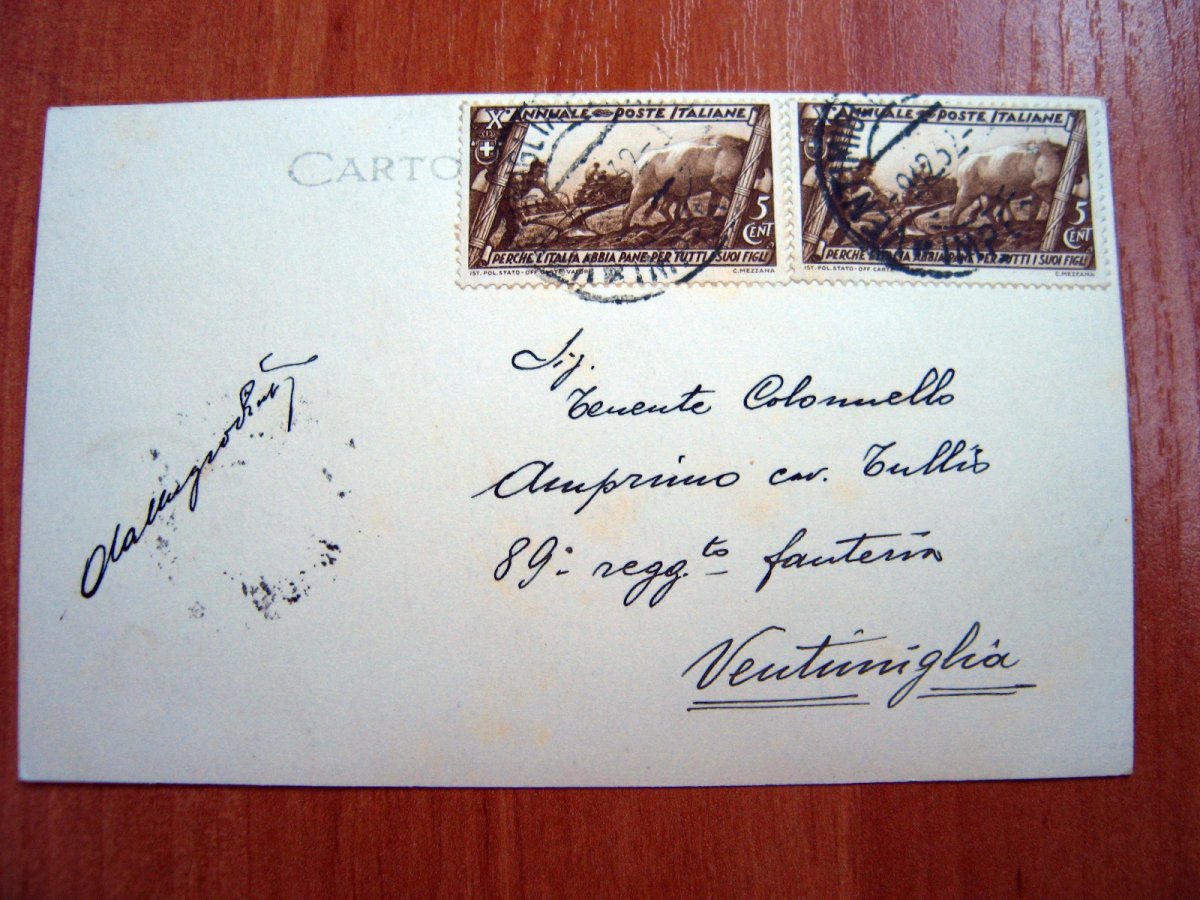 CARTO
Xº ANNUALE POSTE ITALIANE
5
CENT
PERCHE L'ITALIA ABBIA PANE PER TUTTI I SUOI FIGLI
IST. POL. STATO - OFF. CARTE VALORI
C. MEZZANA
Xº ANNUALE POSTE ITALIANE
5
CENT
PERCHE L'ITALIA ABBIA PANE PER TUTTI I SUOI FIGLI
IST. POL. STATO - OFF. CARTE
C. MEZZANA
Sig.
Tenente Colonnello
Amprimo cav. Tullio
89º regg.to fanteria
Ventimiglia